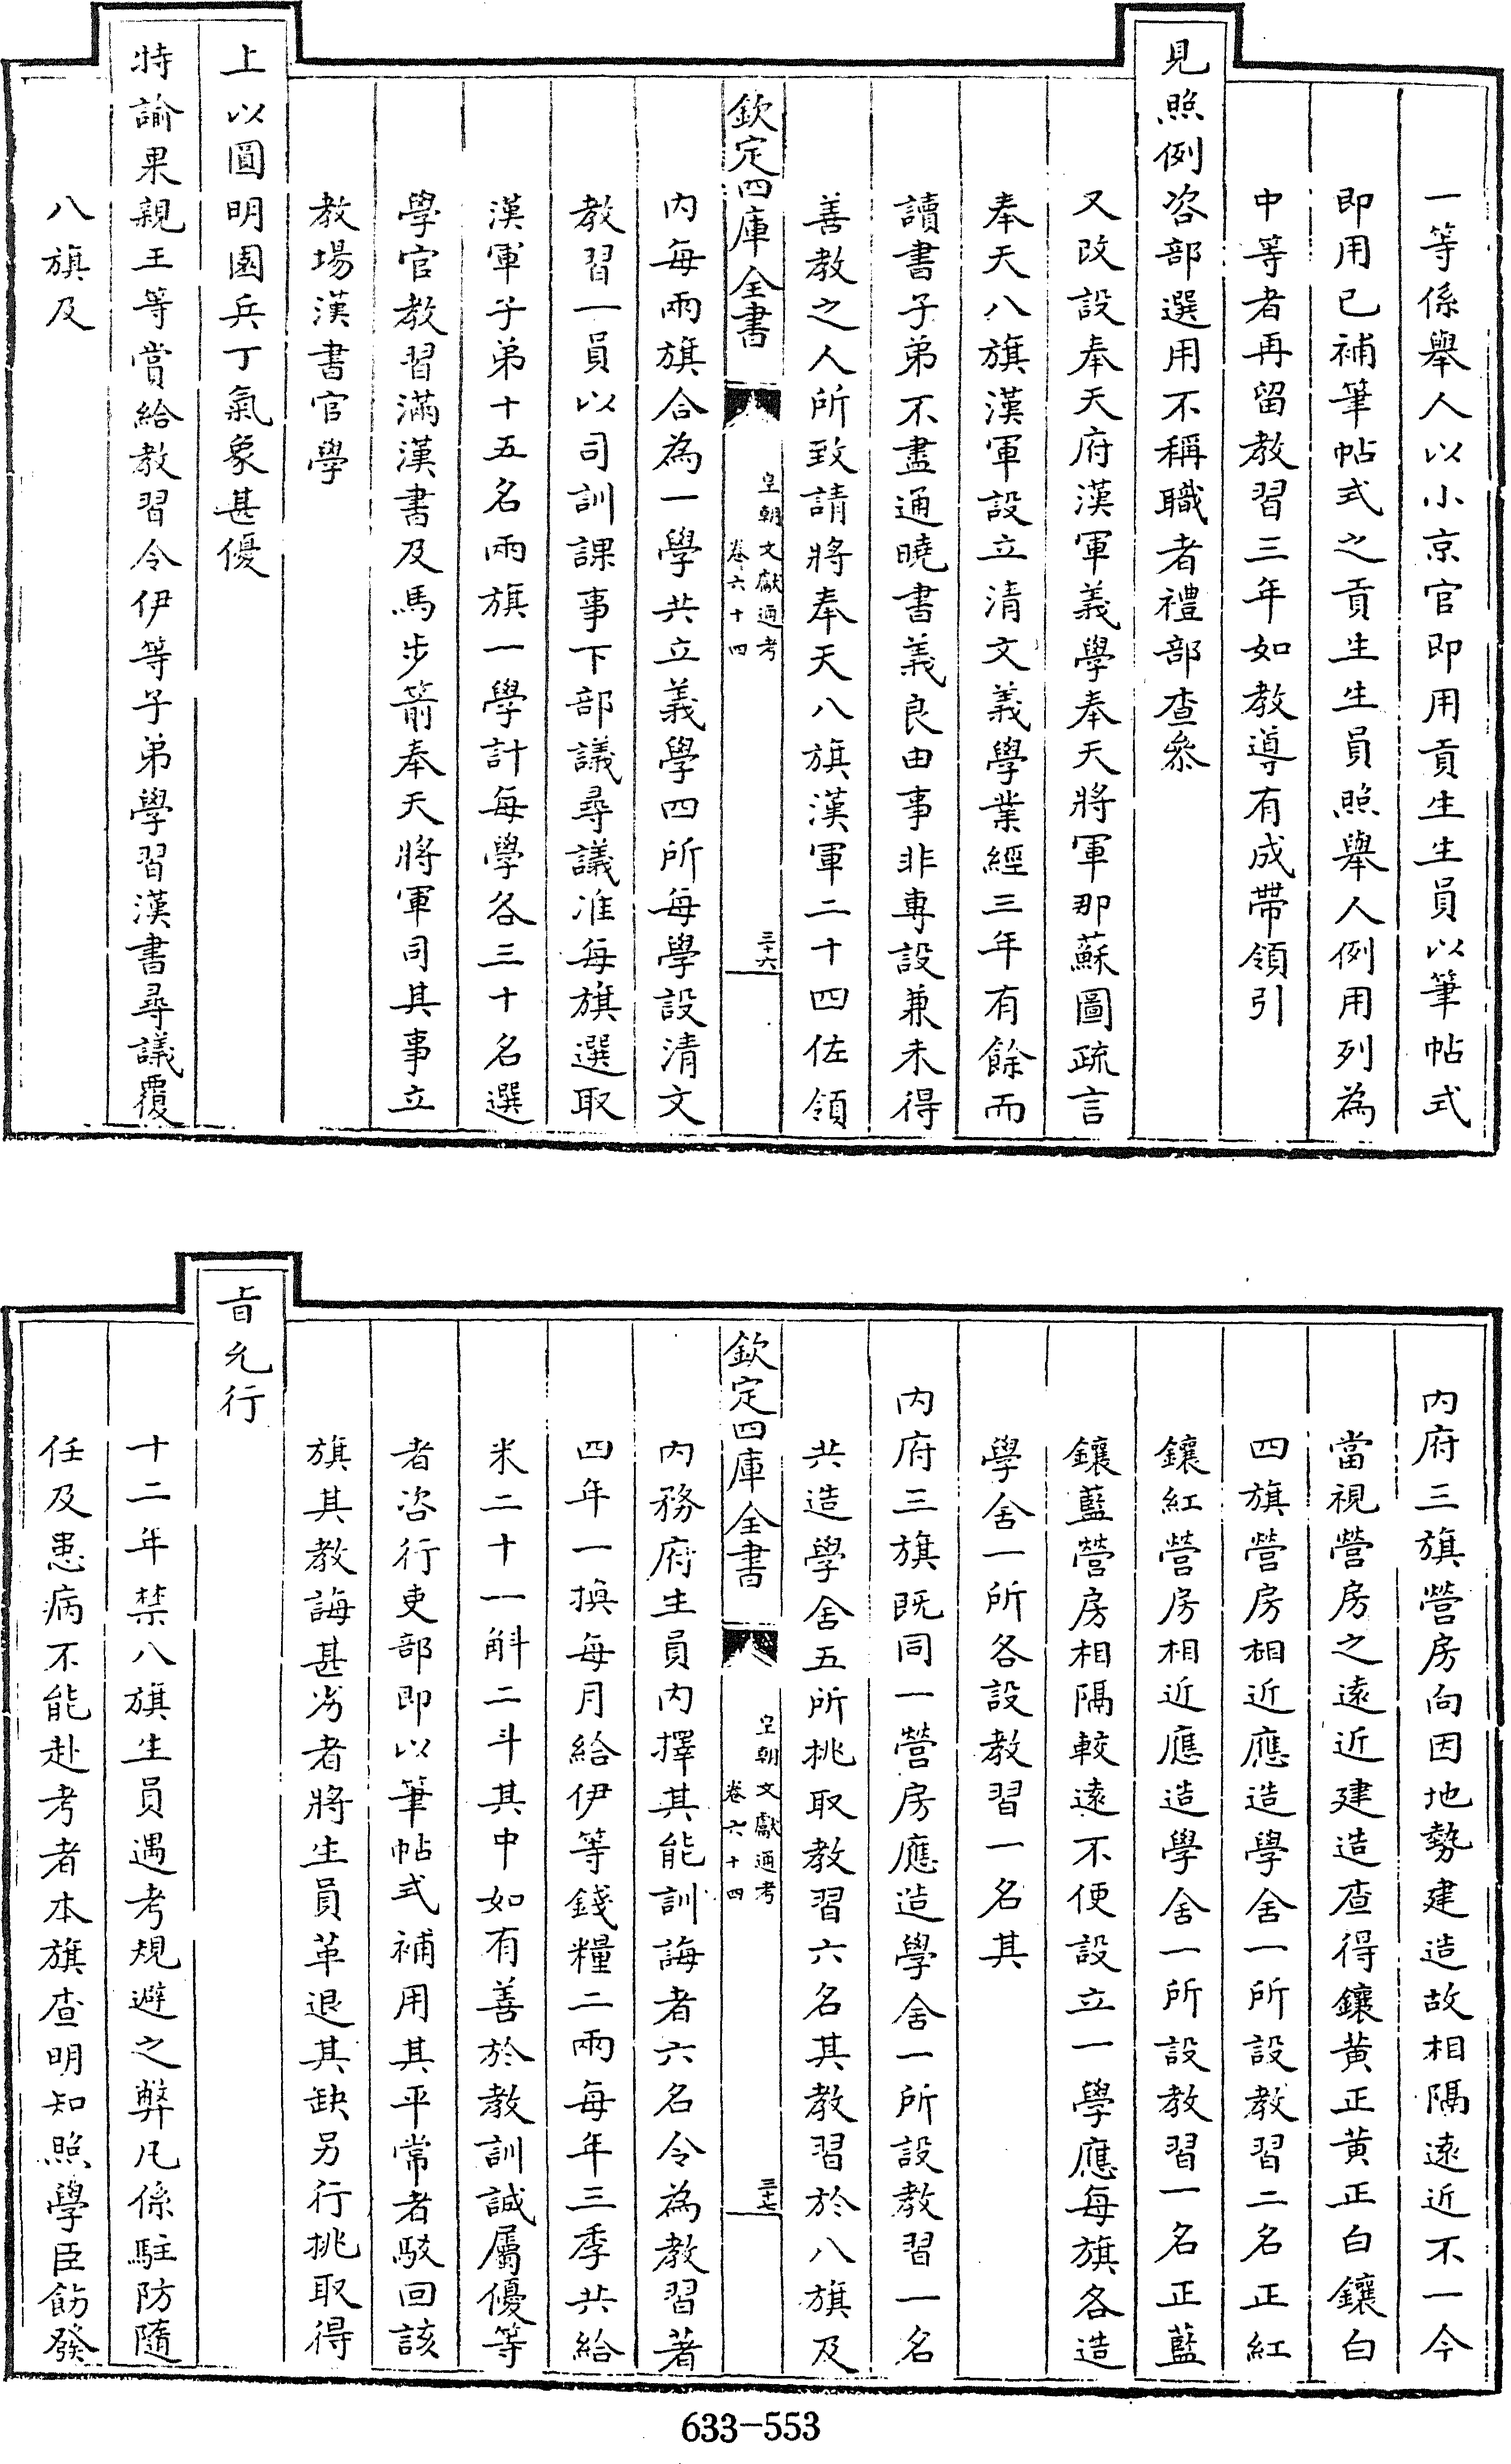 一等係舉人以小京官即用貢生生員以筆帖式
即用已補筆帖式之貢生生員照舉人例用列為
中等者再留教習三年如教導有成帶領引
見照例咨部選用不稱職者禮部查叅
又改設奉天府漢軍義學奉天將軍那蘇圖疏言
奉天八旗漢軍設立清文義學業經三年有餘而
讀書子弟不盡通曉書義良由事非專設兼未得
善教之人所致請將奉天八旗漢軍二十四佐領
欽定四庫全書
皇朝文獻通考
卷六十四
三十六
內每兩旗合為一學共立義學四所每學設清文
教習一員以司訓課事下部議尋議准每旗選取
漢軍子弟十五名兩旗一學計每學各三十名選
學官教習滿漢書及馬步箭奉天將軍司其事立
教場漢書官學
上以圓明園兵丁氣象甚優
特諭果親王等賞給教習令伊等子弟學習漢書尋議覆
八旗及
內府三旗營房向因地勢建造故相隔遠近不一今
當視營房之遠近建造查得鑲黃正黃正白鑲白
四旗營房相近應造學舍一所設教習二名正紅
鑲紅營房相近應造學舍一所設教習一名正藍
鑲藍營房相隔較遠不便設立一學應每旗各造
學舍一所各設教習一名其
內府三旗既同一營房應造學舍一所設教習一名
共造學舍五所挑取教習六名其教習於八旗及
欽定四庫全書
皇朝文獻通考
卷六十四
三十七
內務府生員內擇其能訓誨者六名令為教習著
四年一換每月給伊等錢糧二兩每年三季共給
米二十一斛二斗其中如有善於教訓誠屬優等
者咨行吏部即以筆帖式補用其平常者駁回該
旗其教誨甚劣者將生員革退其缺另行挑取得
旨允行
十二年禁八旗生員遇考規避之弊凡係駐防隨
任及患病不能赴考者本旗查明知照學臣飭發
633-553